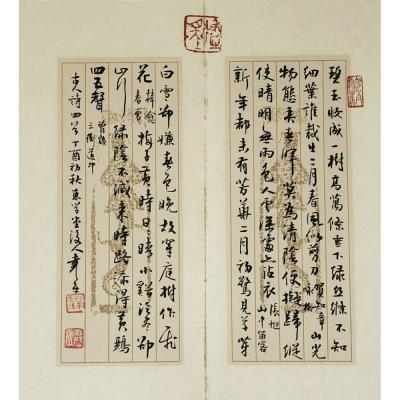 碧玉收成一樹高萬條垂下绿絲絛不知
细葉谁裁出二月春風似剪刀 賀知章 詠柳 山光
物態弄春暉莫為清陰便擬歸縱
使晴明無雨色入雲深處亦沾衣 張旭 山中留客
新年都未有芳華二月初驚見草芽
白雪却嫌春色晚故穿庭樹作飛
花 韓愈 春雪 梅子黄時日日晴小溪泛盡却
山行绿陰不減來時路添得黄鸝
四五聲 曾幾 三衢道中
古人诗四首丁酉初秋東學堂後人章